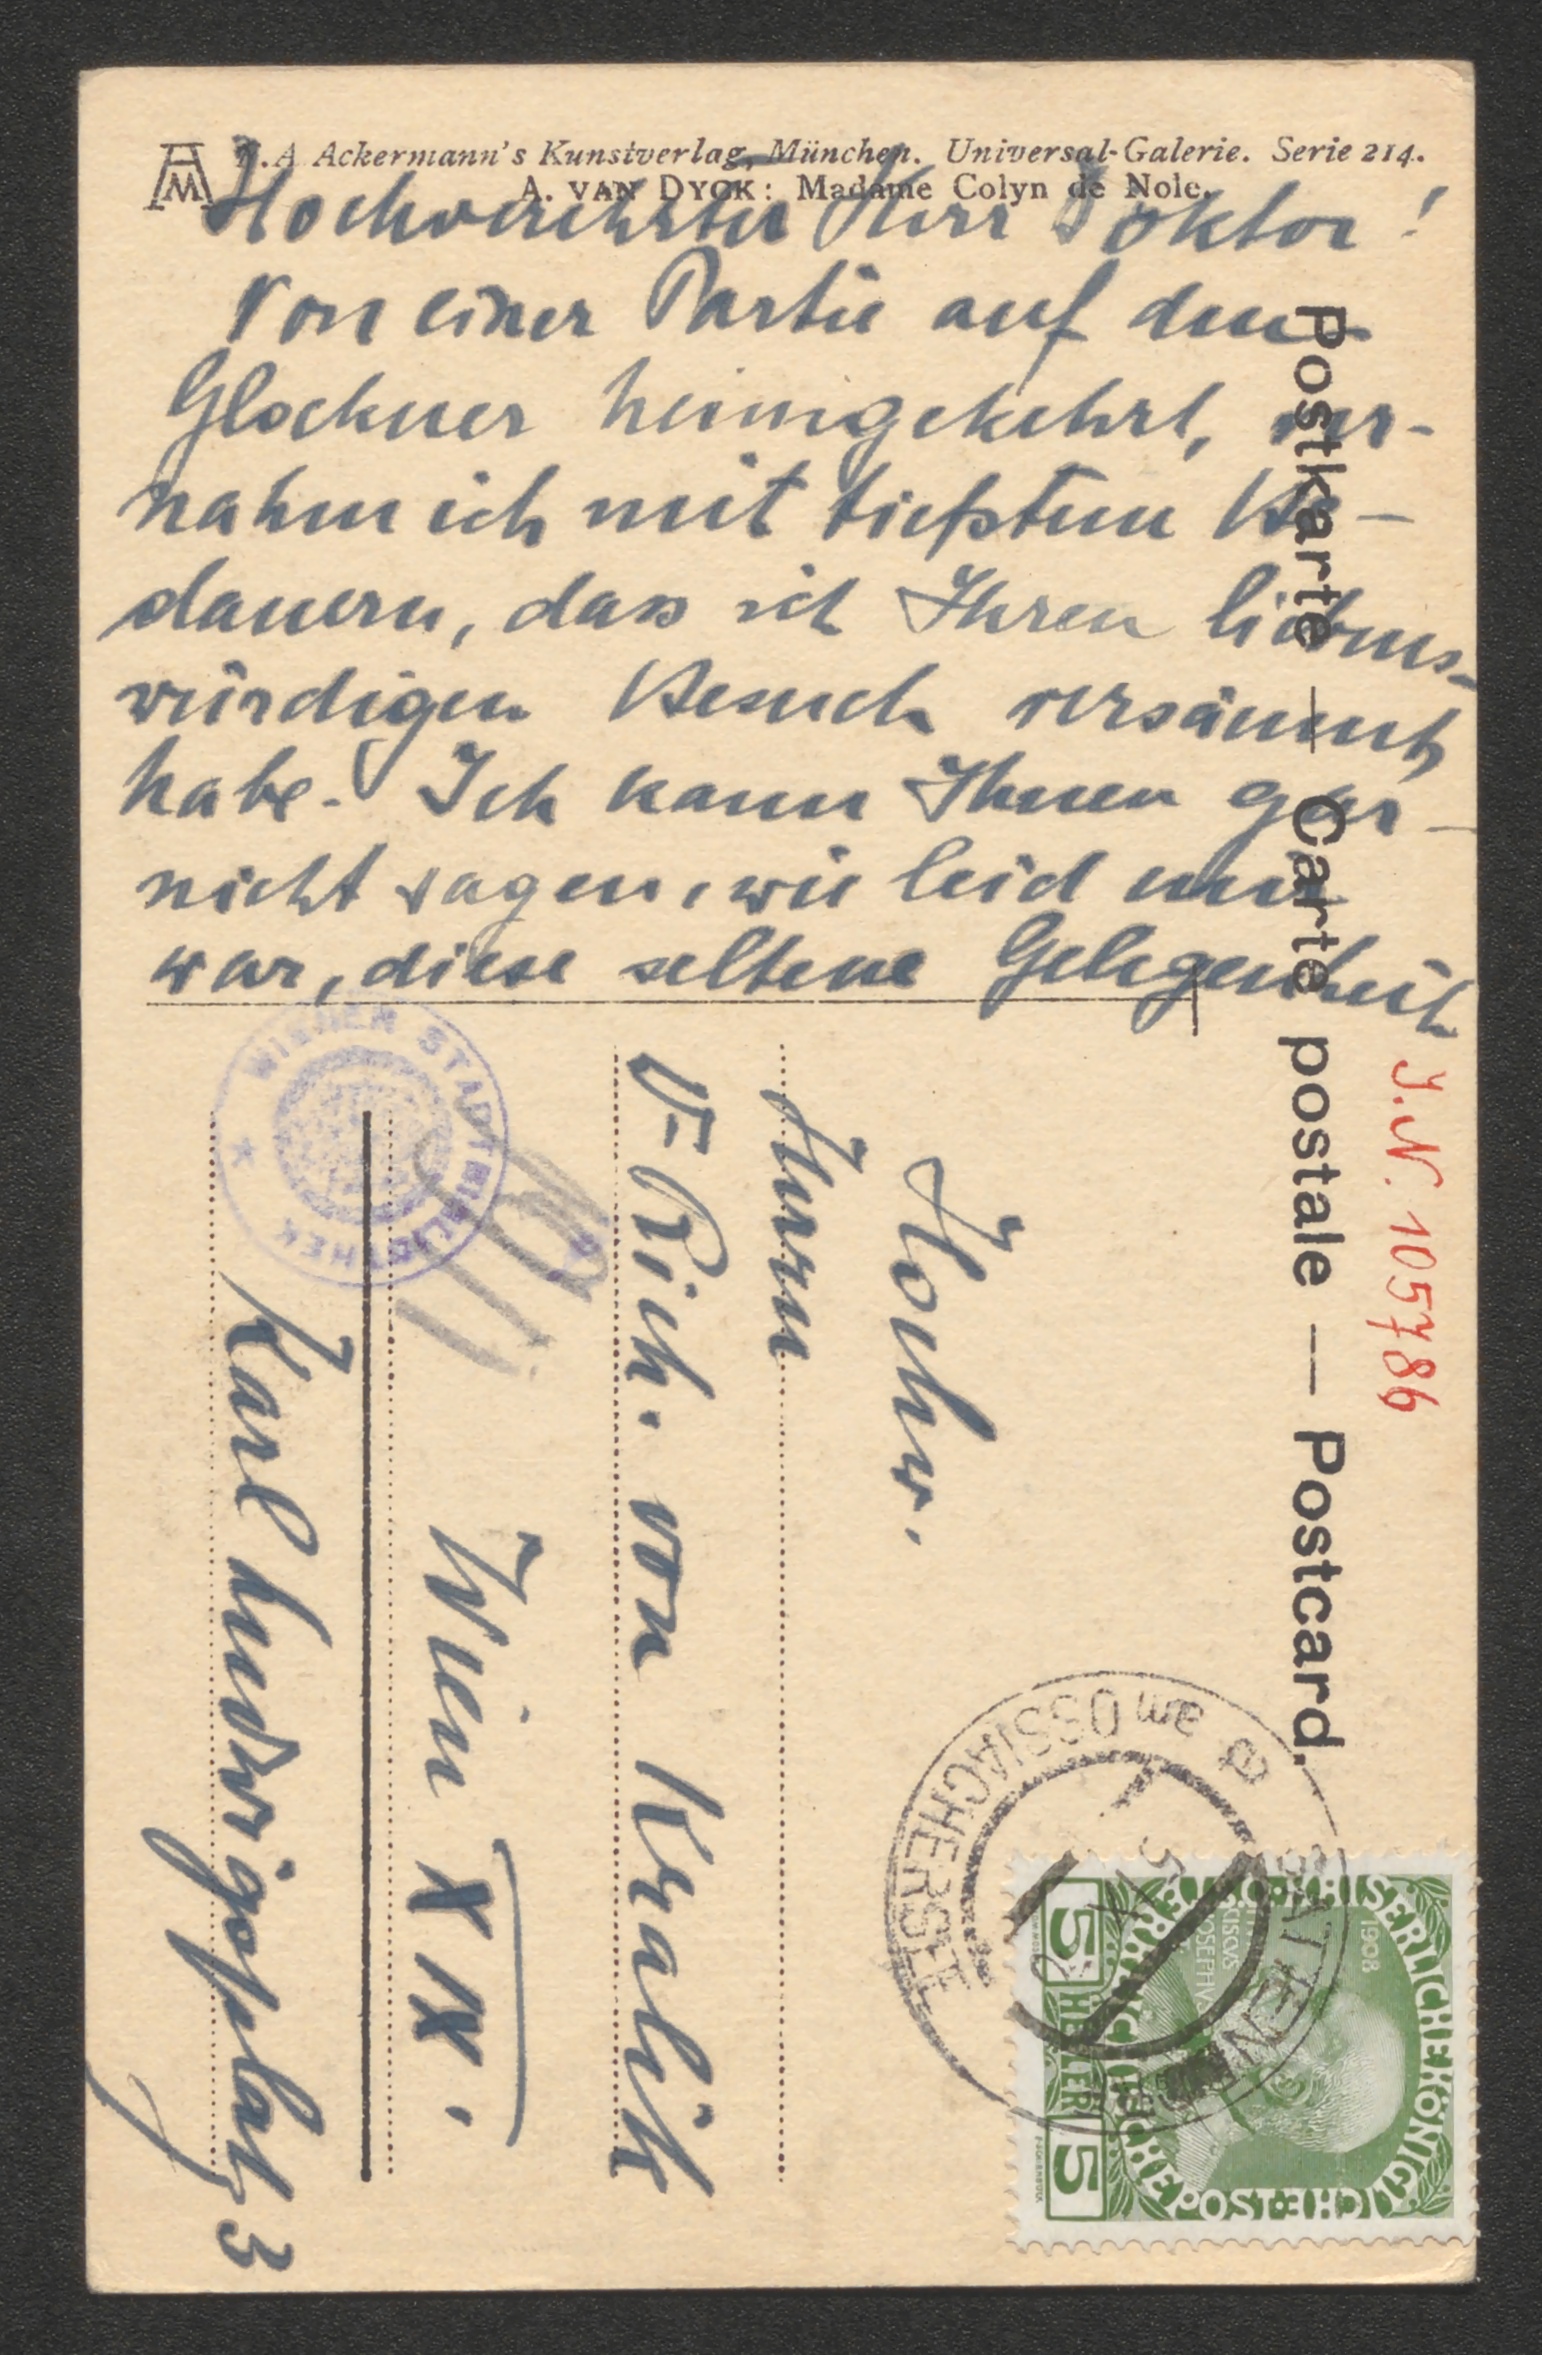 F.A Ackermann's Kunstverlag, München. Universal-Galerie. Serie 214.
A. VAN DYCK: Madame Colyn de Nole.
Hochverehrter Herr Doktor!
Von einer Partie auf den
Glockner heimgekehrt, ver-
nahm ich mit tiefstem Be-
dauern, dass ich Ihren liebens-
würdigen Besuch versäumt
habe. Ich kann Ihnen gar
nicht sagen, wie leid mir
war, diese seltene Gelegenheit
Postkarte — Carte postale — Postcard.
J.N. 105786
Hochw.
Herrn
Dr. Rich. von Kralik
Wien XIX.
Karl Ludwigsplatz 3
WIENER STADTBIBLIOTHEK
SATTENDORF am OSSIACHERSEE
KAISERLICHE KÖNIGLICHE POST
1908
5 HELLER 5